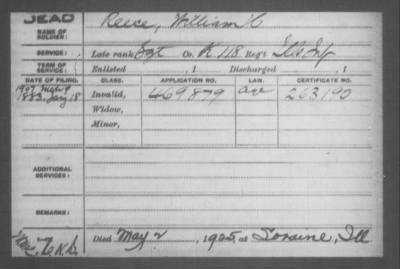 DEAD
NAME OF SOLDIER: Reece, William C
SERVICE: Late rank Sgt Co. K 118 Reg't Ill Inf
TERM OF SERVICE: Enlisted , 1 Discharged , 1
DATE OF FILING. CLASS. APPLICATION NO. LAW. CERTIFICATE NO.
1883 Jany 18 Invalid, 469879 age 263190
Widow,
Minor,
ADDITIONAL SERVICES:
REMARKS:
Died May 2 , 1925, at Loraine, Ill